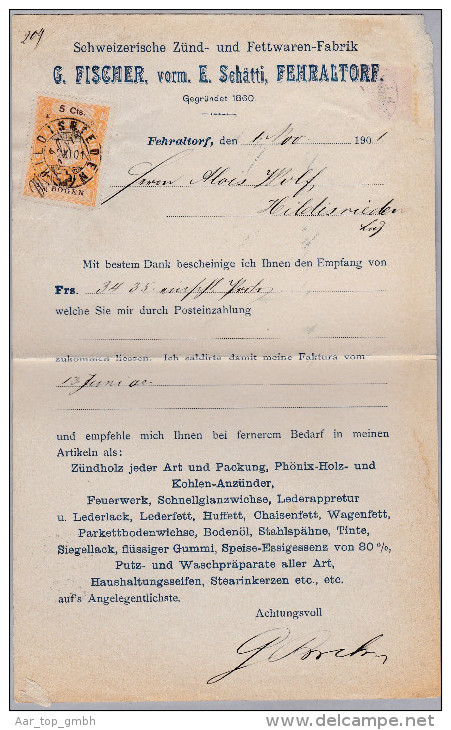 209
Schweizerische Zünd- und Fettwaren-Fabrik
G. FISCHER, vorm. E. Schätti, FEHRALTORF.
Gegründet 1860.
5 Cts.
HILDISRIEDEN
BOGEN
Fehraltorf, den 1 Nov 1901
Herrn Alois Wolf,
Hildisrieden
Mit bestem Dank bescheinige ich Ihnen den Empfang von
Frs. 34 35
welche Sie mir durch Posteinzahlung
zukommen liessen. Ich saldirte damit meine Faktura vom
13 Juni
und empfehle mich Ihnen bei fernerem Bedarf in meinen
Artikeln als:
Zündholz jeder Art und Packung, Phönix-Holz- und
Kohlen-Anzünder,
Feuerwerk, Schnellglanzwichse, Lederappretur
u. Lederlack, Lederfett, Huffett, Chaisenfett, Wagenfett,
Parkettbodenwichse, Bodenöl, Stahlspähne, Tinte,
Siegellack, flüssiger Gummi, Speise-Essigessenz von 80 %,
Putz- und Waschpräparate aller Art,
Haushaltungsseifen, Stearinkerzen etc., etc.
auf's Angelegentlichste.
Achtungsvoll
Aar_top_gmbh
delcampe.net